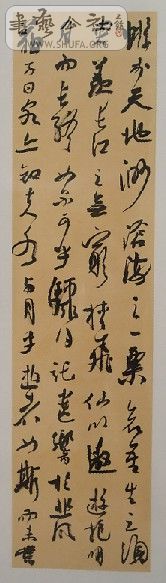 於天地渺滄海之一粟哀吾生之須
臾羨長江之無窮挾飛仙以遨遊抱明
月而長終知不可乎驟得託遺響於悲風
蘇子曰客亦知夫水與月乎逝者如斯而未嘗
書藝公社
WWW.SHUFA.ORG